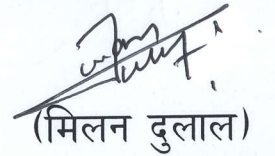 (मिलन दुलाल)